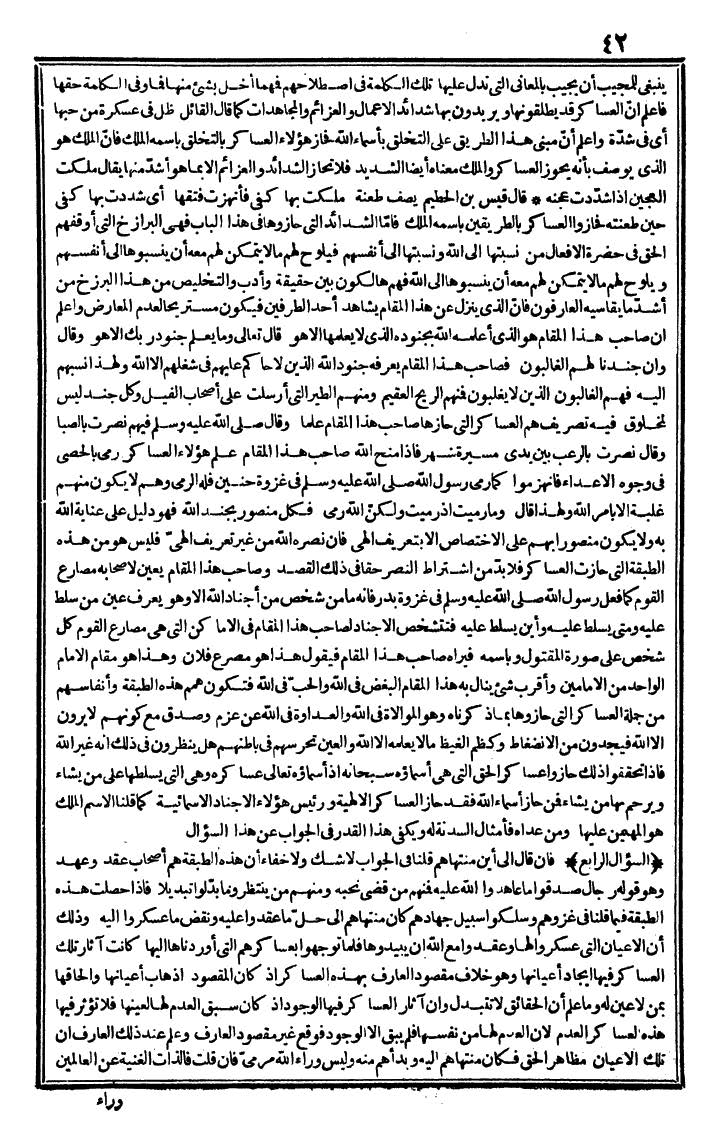 ٤٢
ينبغي للمجيب أن يجيب بالمعاني التي تدل عليها تلك الكلمة في اصطلاحهم فهما أخل بشئ منها فما وفى الكلمة حقها
فاعلم انّ العساكر قد يطلقونها ويريدون بها شدائد الاعمال والعزائم والمجاهدات كما قال القائل ظل في عسكرة من حبها
أي في شدّة واعلم أنّ مبنى هذا الطريق على التخلق بأسماء الله فحاز هؤلاء العساكر بالتخلق باسمه الملك فانّ الملك هو
الذي يوصف بأنه يحوز العساكر والملك معناه أيضا الشديد فلا تحاز الشدائد والعزائم الابما هو أشدّ منها يقال ملكت
العجين اذا شدّدت عجنه * قال قيس بن الحطيم يصف طعنة ملكت بها كفي فأنهزت فتقها أي شددت بها كفي
حين طعنته فحازوا العساكر بالطريقين باسمه الملك فامّا الشدائد التي حازوها في هذا الباب فهى البرازخ التي أوقفهم
الحق في حضرة الافعال من نسبتها الى الله ونسبتها الى أنفسهم فيلوح لهم مالا يتمكن لهم معه أن ينسبوها الى أنفسهم
ويلوح لهم مالا يتمكن لهم معه أن ينسبوها الى الله فهم هالكون بين حقيقة وأدب والتخليص من هذا البرزخ من
أشدّ ما يقاسيه العارفون فانّ الذي ينزل عن هذا المقام يشاهد أحد الطرفين فيكون مستريحا لعدم المعارض واعلم
ان صاحب هذا المقام هو الذي أعلمه الله بجنوده الذي لا يعلمها الاهو قال تعالى وما يعلم جنود ربك الاهو وقال
وان جندنا لهم الغالبون فصاحب هذا المقام يعرفه جنود الله الذين لا حاكم عليهم في شغلهم الا الله ولهذا نسبهم
اليه فهم الغالبون الذين لا يغلبون فنهم الريح العقيم ومنهم الطير التي أرسلت على أصحاب الفيل وكل جند ليس
لمخلوق فيه تصريف هم العساكر التي حازها صاحب هذا المقام علما وقال صلى الله عليه وسلم فيهم نصرت بالصبا
وقال نصرت بالرعب بين يدى مسيرة شهر فاذا منح الله صاحب هذا المقام علم هؤلاء العساكر رمى بالحصى
في وجوه الاعداء فانهزموا كما رمى رسول الله صلى الله عليه وسلم في غزوة حنين فله الرمى وهم لا يكون منهم
غلبة الا بامر الله ولهذا قال وما رميت اذ رميت ولكنّ الله رمى فكل منصور بجند الله فهو دليل على عناية الله
به ولا يكون منصورا بهم على الاختصاص الا بتعريف الهي فان نصره الله من غير تعريف الهيّ فليس هو من هذه
الطبقة التي حازت العساكر فلا بدّ من اشتراط النصر حقا في ذلك القصد وصاحب هذا المقام يعين لاصحابه مصارع
القوم كما فعل رسول الله صلى الله عليه وسلم في غزوة بدر فانه ما من شخص من أجناد الله الا وهو يعرف عين من سلط
عليه ومتى يسلط عليه وأين يسلط عليه فتتشخص الاجناد لصاحب هذا المقام في الاماكن التي هي مصارع القوم كل
شخص على صورة المقتول وباسمه فيراه صاحب هذا المقام فيقول هذا هو مصرع فلان وهذا هو مقام الامام
الواحد من الامامين وأقرب شئ ينال به هذا المقام البغض في الله والحبّ في الله فتكون همم هذه الطبقة وأنفاسهم
من جملة العساكر التي حازوها بما ذكرناه وهو الموالاة في الله والعداوة في الله عن عزم وصدق مع كونهم لا يرون
الا الله فيجدون من الانضغاط وكظم الغيظ ما لا يعلمه الا الله والعين تحرسهم في باطنهم هل ينظرون في ذلك انه غير الله
فاذا تحققوا ذلك حازوا عساكر الحق التي هي أسماؤه سبحانه اذ أسماؤه تعالى عساكره وهي التي يسلطها على من يشاء
ويرحم بها من يشاء فن حاز أسماء الله فقد حاز العساكر الالهية ورئيس هؤلاء الاجناد الاسمائية كما قلنا الاسم الملك
هو المهيمن عليها ومن عداه فأمثال السدنة له ويكفي هذا القدر في الجواب عن هذا السؤال
﴿السؤال الرابع﴾ فان قال الى أين منتهاهم قلنا في الجواب لاشك ولاخفاء أن هذه الطبقة هم أصحاب عقد وعهد
وهو قوله رجال صدقوا ما عاهدوا الله عليه فنهم من قضى نحبه ومنهم من ينتظر وما بدّلوا تبديلا فاذا حصلت هذه
الطبقة فيما قلنا في غزوهم وسلكوا سبيل جهادهم كان منتهاهم الى حلّ ما عقدوا عليه ونقض ما عسكروا اليه وذلك
أن الاعيان التي عسكروا لها وعقدوا مع الله ان يبيدوها فلما توجهوا بعساكرهم التي أوردناها اليها كانت آثار تلك
العساكر فيها ايجاد أعيانها وهو خلاف مقصود العارف بهذه العساكر اذ كان المقصود اذهاب أعيانها والحاقها
بمن لاعين له وما علم أن الحقائق لا تتبدل وان آثار العساكر فيها الوجود اذ كان سبق العدم لها لعينها فلا تؤثر فيها
هذه العساكر العدم لان العدم لها من نفسها فلم يبق الا الوجود فوقع غير مقصود العارف وعلم عند ذلك العارف ان
تلك الاعيان مظاهر الحق فكان منتهاهم اليه وبدأهم منه وليس وراء الله مرمى فان قلت فالذات الغنية عن العالمين
وراء